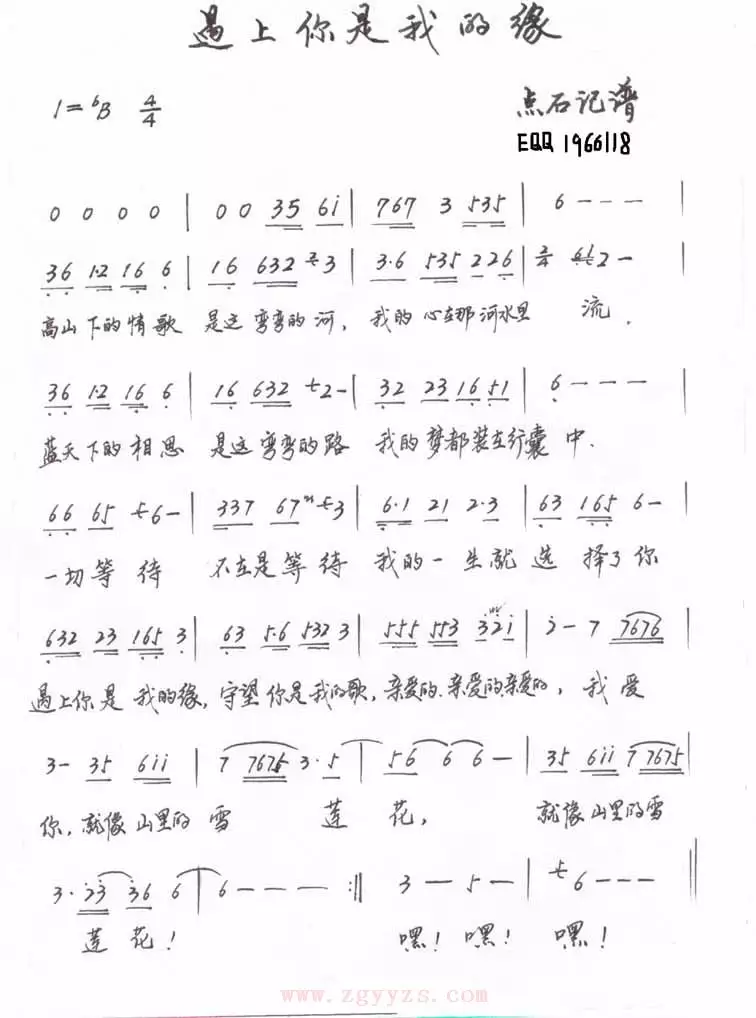 遇上你是我的缘
1=♭B 4/4
点石记谱
EQQ 1966118
0 0 0 0 | 0 0 35 6i | 767 3 535 | 6 - - - |
36 1·2 16 6 | 16 632 3 | 3·6 535 2 26 | 2/4 2 - |
高山下的情歌 是这弯弯的河, 我的心在那河水里 流.
36 1·2 16 6 | 16 632 2 - | 32 23 16 51 | 6 - - - |
蓝天下的相思 是这弯弯的路 我的梦都装在行囊中.
66 65 6 - | 337 67 3 | 6·1 21 2·3 | 63 165 6 - |
一切等待 不在是等待 我的一生就选择了你
632 23 165 3 | 63 5·6 532 3 | 555 553 32i | 2 - 7 7676 |
遇上你是我的缘, 守望你是我的歌, 亲爱的.亲爱的.亲爱的, 我爱
3 - 35 6ii | 7 7675 3·5 | 56 6 6 - | 35 6ii 7 7675 |
你, 就像山里的雪 莲花, 就像山里的雪
3·23 36 6 | 6 - - - :|| 3 - 5 - | 6 - - - ||
莲花! 嘿! 嘿! 嘿!
www.zgyyzs.com